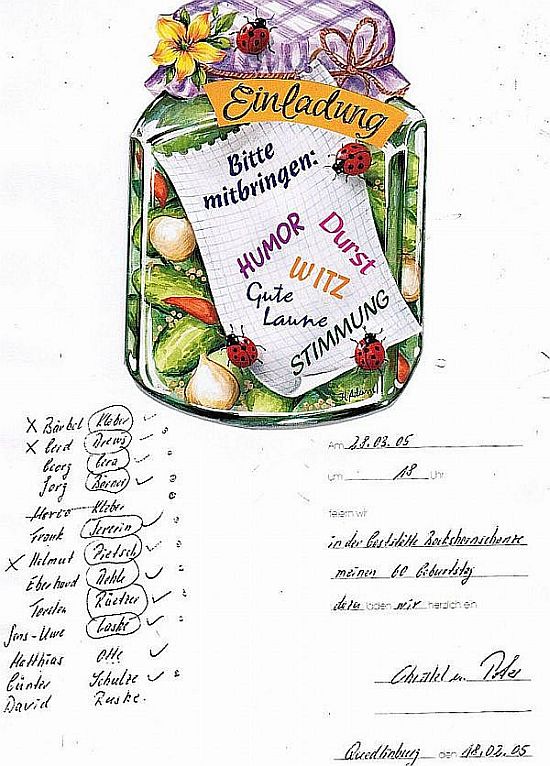 Einladung
Bitte
mitbringen:
HUMOR
Durst
WITZ
Gute
Laune
STIMMUNG
X Bärbel Kleber ✓
X Gerd Drews ✓
Georg Cera ✓
Jörg Börner ✓
Marco Kleber
Frank Severin ✓
X Helmut Pietsch ✓
Eberhard Dehle ✓
Torsten ✓
Jens-Uwe Laske ✓
Matthias Otte ✓
Günter Schulze ✓
David Ruske.
Am 28.03.05
um 18 Uhr
feiern wir
in der Gaststätte Bockshornschanze
meinen 60 Geburtstag
dazu laden wir herzlich ein
Quedlinburg den 18.02.05